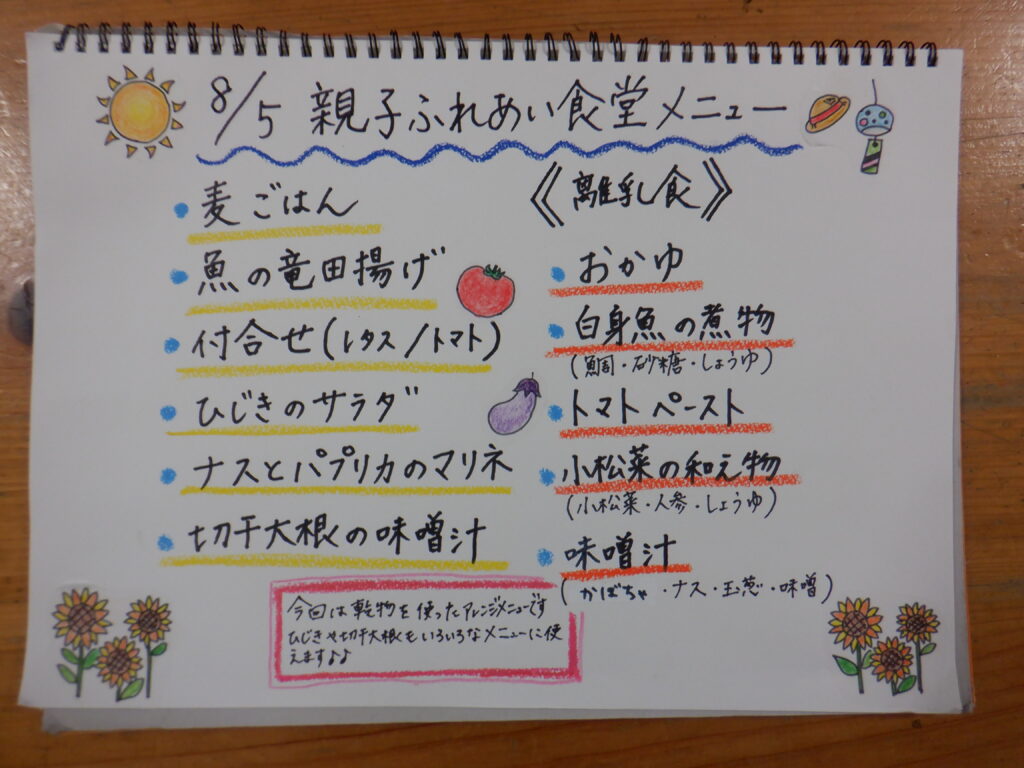 8/5 親子ふれあい食堂メニュー
・麦ごはん
・魚の竜田揚げ
・付合せ(レタス/トマト)
・ひじきのサラダ
・ナスとパプリカのマリネ
・切干大根の味噌汁
《離乳食》
・おかゆ
・白身魚の煮物
(鯛・砂糖・しょうゆ)
・トマトペースト
・小松菜の和え物
(小松菜・人参・しょうゆ)
・味噌汁
(かぼちゃ・ナス・玉葱・味噌)
今回は乾物を使ったアレンジメニューです
ひじきや切干大根もいろいろなメニューに使
えます♪♪